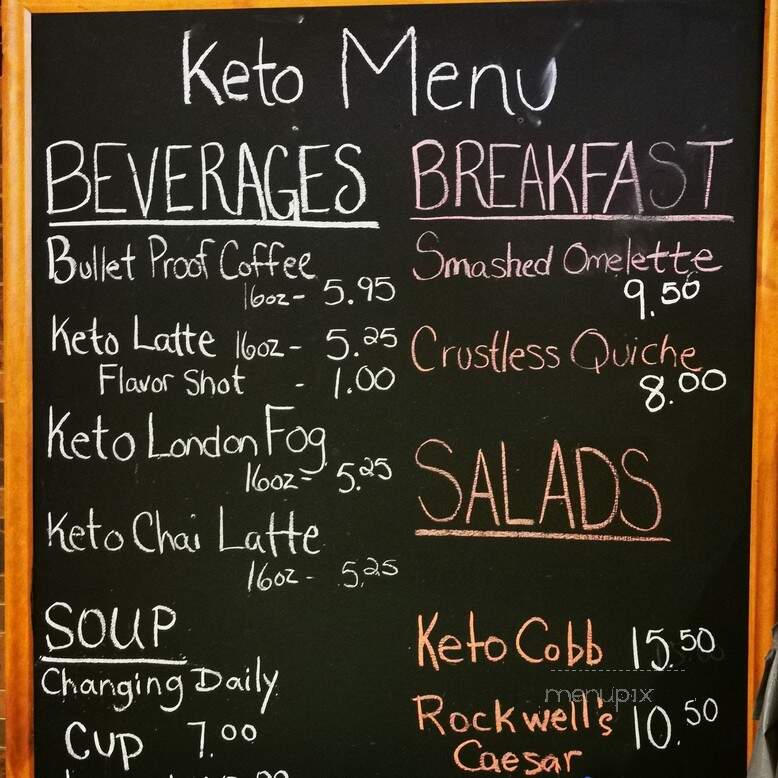 Keto Menu
BEVERAGES
Bullet Proof Coffee
16oz - 5.95
Keto Latte 16oz - 5.25
Flavor Shot - 1.00
Keto London Fog
16oz - 5.25
Keto Chai Latte
16oz - 5.25
SOUP
Changing Daily
CUP 7.00
BREAKFAST
Smashed Omelette
9.50
Crustless Quiche
8.00
SALADS
Keto Cobb 15.50
menupix
Rockwell's 10.50
Caesar